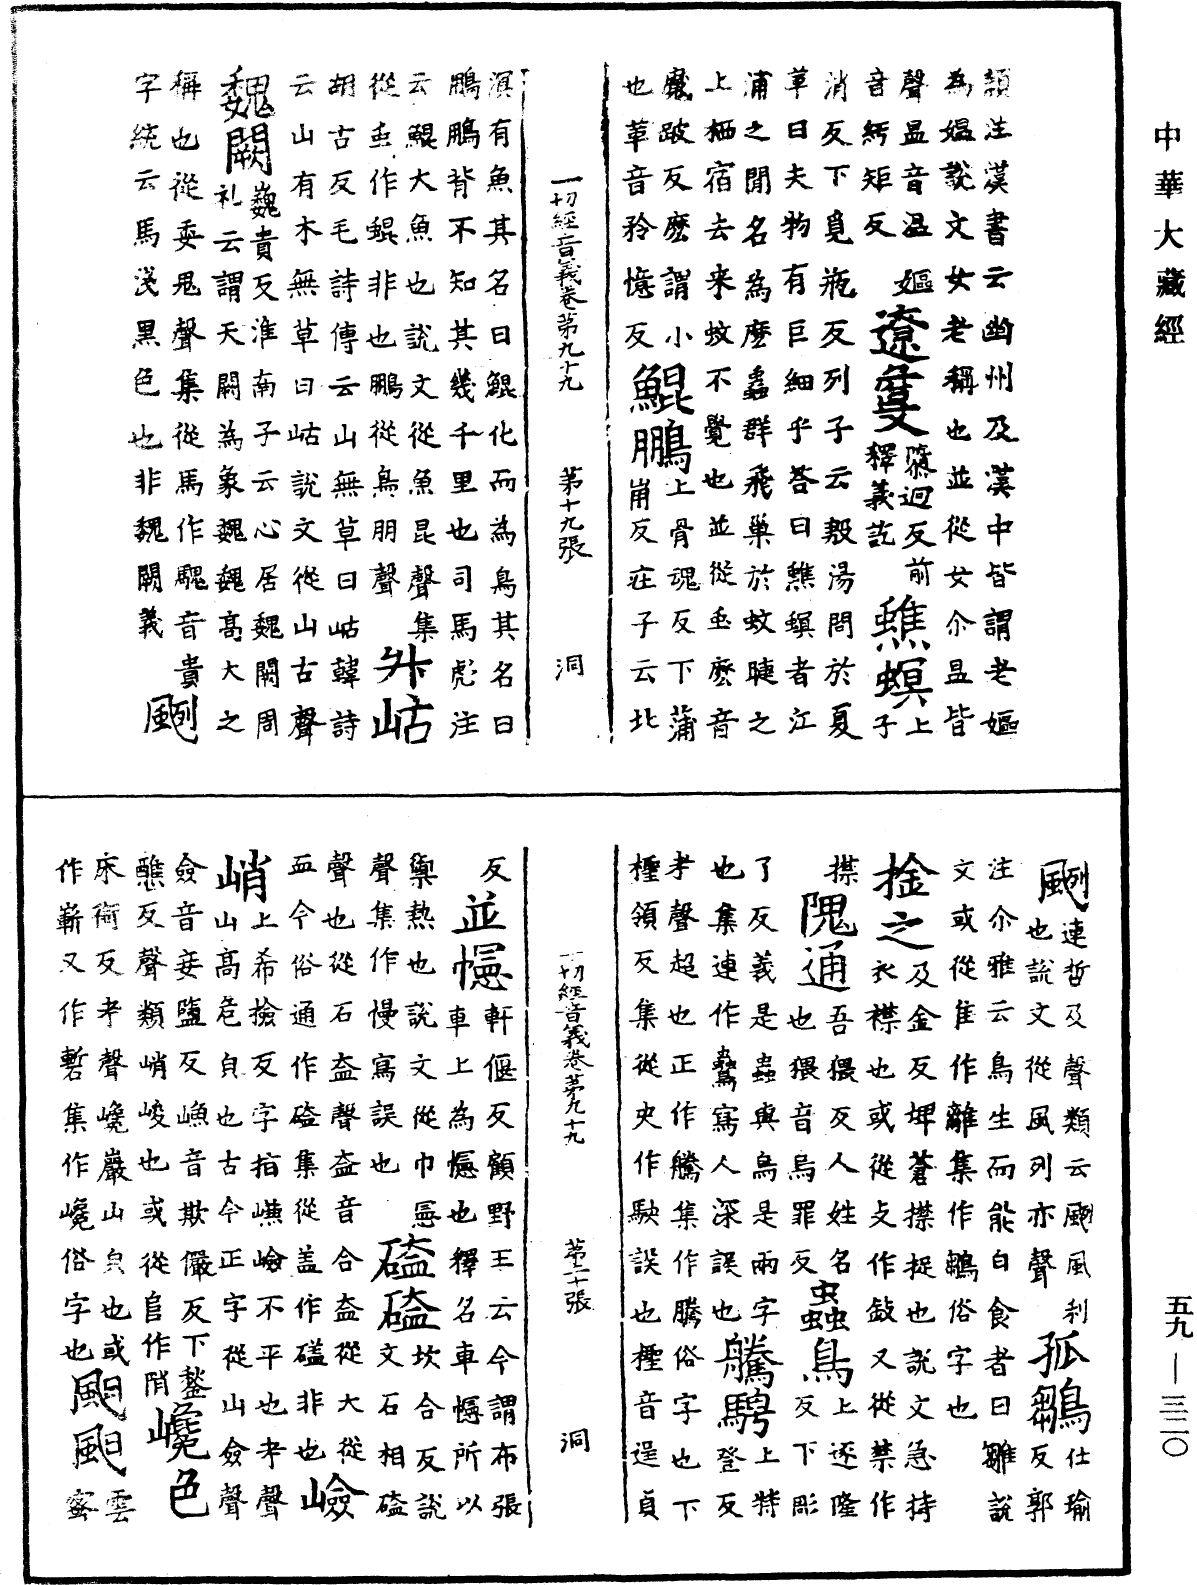 中華大藏經
額注漢書云幽州及漢中皆謂老嫗
為媼說文女老稱也並從女介昷皆
聲昷音温嫗
音紆矩反
遼敻
隳迥反前
釋義訖
蟭螟
上子
消反下覓瓶反列子云殷湯問於夏
革曰夫物有巨細乎荅曰蟭螟者江
浦之閒名為麽蟲群飛巢於蚊睫之
上栖宿去来蚊不覺也並從虫麽音
魔跛反麽謂小
也革音矜憶反
鯤鵬
上骨魂反下蒲
崩反莊子云北
一切經音義卷第九十九 第十九張 洞
溟有魚其名曰鯤化而為鳥其名曰
鵬鵬背不知其幾千里也司馬彪注
云鯤大魚也說文從魚昆聲集
從虫作蜫非也鵬從鳥朋聲
屺岵
胡古反毛詩傳云山無草曰岵韓詩
云山有木無草曰岵說文從山古聲
魏闕
巍貴反淮南子云心居魏闕周
礼云謂天闕為象魏魏高大之
稱也從委鬼聲集從馬作騩音貴
字統云馬淺黑色也非魏闕義
颲
颲
連哲反聲類云颲風利
也說文從風列亦聲
孤鶵
仕瑜
反郭
注介雅云鳥生而能自食者曰雛說
文或從隹作雛集作鶵俗字也
捦之
及金反埤蒼捸捉也說文急持
衣襟也或從攴作㪁又從禁作
㩒
隗通
吾猥反人姓名
也猥音烏罪反
蟲鳥
上逐隆
反下彫
了反義是蟲與鳥是兩字
也集連作䳋寫人深誤也
騰騁
上特
登反
考聲超也正作騰集作騰俗字也下
檉領反集從史作駛誤也檉音逞貞
一切經音義卷第九十九 第二十張 洞
反
並幰
軒偃反顧野王云今謂布張
車上為幰也釋名車幰所以
禦熱也說文從巾憲
聲集作慢寫誤也
磕磕
坎合反說
文石相磕
聲也從石盍聲盍音合盍從大從
血今俗通作磕集從盖作礚非也
嶮
峭
上希撿反字指㠗嶮不平也考聲
山高危皃也古今正字從山僉聲
僉音妾鹽反㠗音欺儼反下鍫
醮反聲類峭峻也或從𨸏作陗
巉色
床銜反考聲巉巖山皃也或
作嶄又作磛集作巉俗字也
颶颶
雲
蜜
五九—三二〇